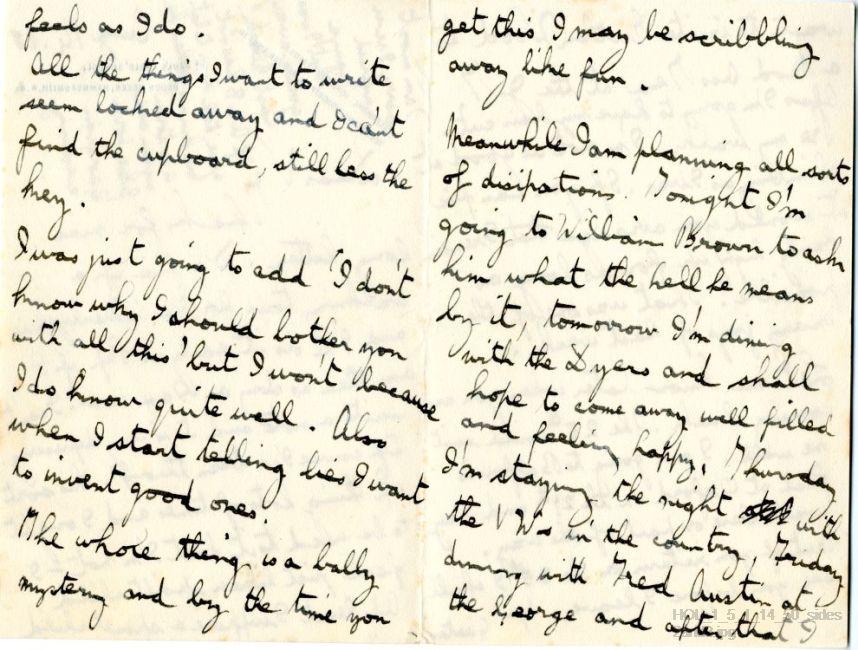 feels as I do.
All the things I want to write
seem locked away and I can't
find the cupboard, still less the
key.
I was just going to add 'I don't
know why I should bother you
with all this' but I won't because
I do know quite well. Also
when I start telling lies I want
to invent good ones.
The whole thing is a bally
mystery and by the time you
get this I may be scribbling
away like fun.
Meanwhile I am planning all sorts
of disipations. Tonight I'm
going to William Brown to ask
him what the hell he means
by it, tomorrow I'm dining
with the Dyers and shall
hope to come away well filled
and feeling happy. Thursday
I'm staying the night with
the VW's in the country, Friday
dining with Fred Austin at
the George and after that I